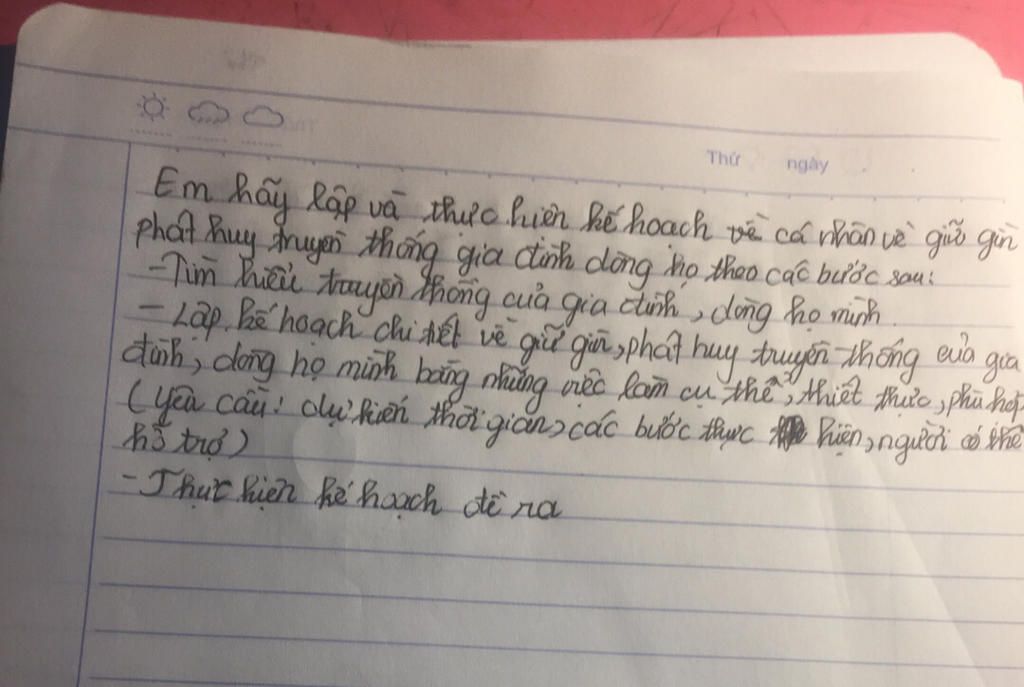 Thứ ngày
Em hãy lập và thực hiện kế hoạch về cá nhân về giữ gìn
phát huy truyền thống gia đình dòng họ theo các bước sau:
-Tìm hiểu truyền thống của gia đình, dòng họ mình.
- Lập kế hoạch chi tiết về giữ gìn, phát huy truyền thống của gia
đình, dòng họ mình bằng những việc làm cụ thể, thiết thực, phù hợp
(Yêu cầu: dự kiến thời gian, các bước thực hiện, người có thể
hỗ trợ)
-Thực hiện kế hoạch đề ra